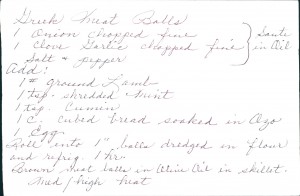 Greek Meat Balls
1 Onion chopped fine
1 clove Garlic chopped fine } Saute in Oil
Salt & pepper
Add:
1# ground Lamb
1 tsp. shredded Mint
1 tsp. Cumin
1 c. cubed bread soaked in Ouzo
1 Egg
Roll into 1" balls dredged in flour
and refrig. 1 hr.
Brown meat balls in Olive Oil in skillet.
Med/high heat